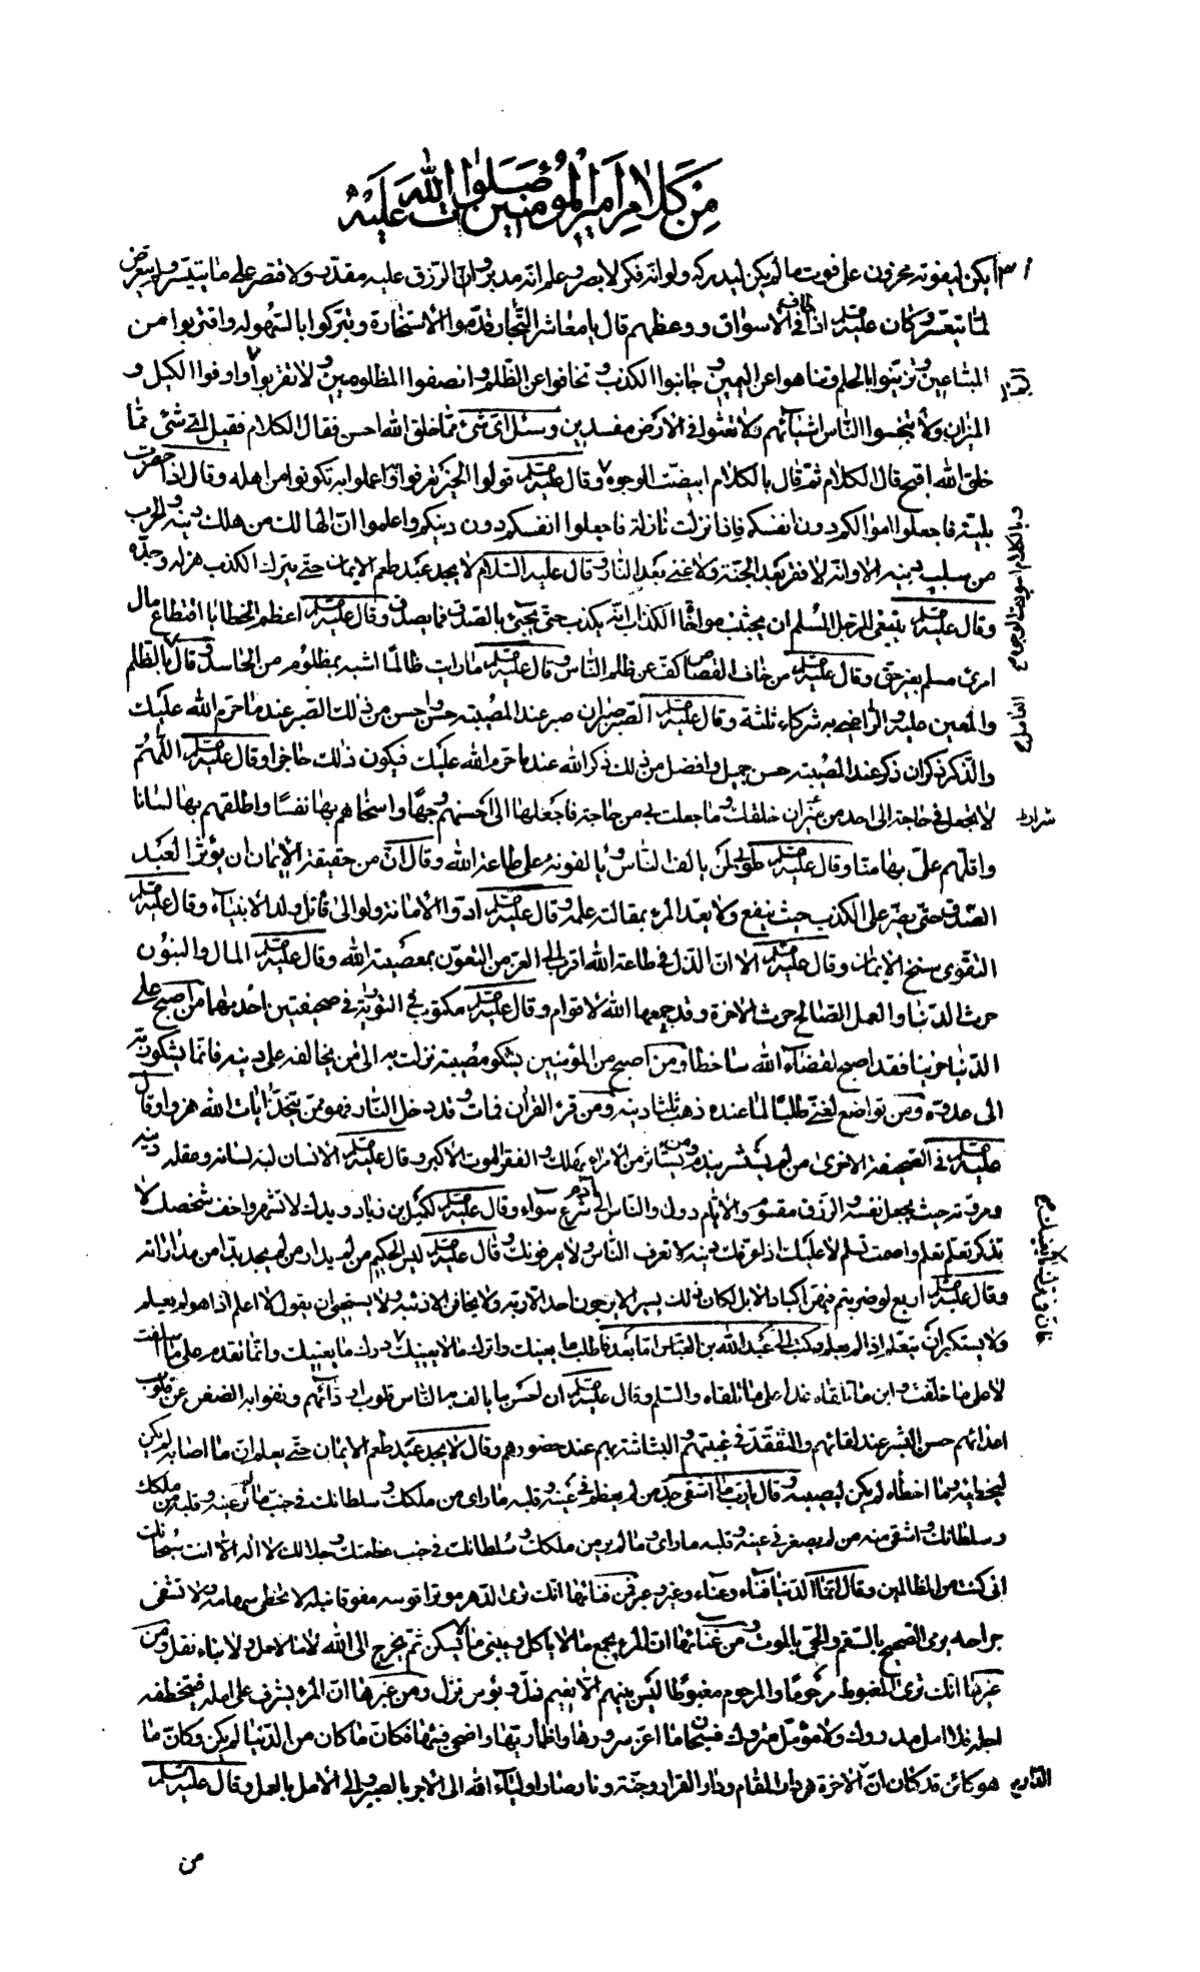 من كلام أمير المؤمنين صلوات الله عليه
يكن ليفوته محزون على فوت ما لم يكن ليدركه ولو انه فكر لابصر وعلم انه مدبر وان الرزق عليه مقدر ولاقتصر على ما يتيسر ولم يتعرض
لما يتعسر وكان عليه السلم اذا طاف فى الاسواق ووعظهم قال يا معاشر التجار قدموا الاستخارة وتبركوا بالسهولة واقتربوا من
المبتاعين وتزينوا بالحلم وتناهوا عن اليمين وجانبوا الكذب وتخافوا عن الظلم وانصفوا المظلومين ولا تقربوا واوفوا الكيل و
الميزان ولا تبخسوا الناس اشياءهم ولا تعثوا فى الارض مفسدين وسئل اى شئ مما خلق الله احسن فقال الكلام فقيل اى شئ مما
خلق الله اقبح قال الكلام ثم قال بالكلام ابيضت الوجوه وقال عليه السلم قولوا الخير تعرفوا به واعملوا به تكونوا من اهله وقال اذا حضرت
بلية فاجعلوا اموالكم دون انفسكم فاذا نزلت نازلة فاجعلوا انفسكم دون دينكم واعلموا ان الهالك من هلك دينه والحرب
من سلب دينه الا وانه لا فقر بعد الجنة ولا غنى بعد النار وقال عليه السلام لا يجد عبد طعم الايمان حتى يترك الكذب هزله وجده
وقال عليه السلم ينبغى للرجل المسلم ان يجتنب مواخاة الكذاب انه يكذب حتى يجئ بالصدق فما يصدق وقال عليه السلم اعظم الخطايا اقتطاع مال
امرئ مسلم بغير حق وقال عليه السلم من خاف القصاص كف عن ظلم الناس وقال عليه السلم ما رايت ظالما اشبه بمظلوم من الحاسد وقال بالظلم
والمعين عليه والراضى به شركاء ثلثة وقال عليه السلم الصبر صبران صبر عند المصيبة حسن واحسن من ذلك الصبر عند ما حرم الله عليك
والذكر ذكران ذكر عند المصيبة حسن جميل وافضل من ذلك ذكر الله عند ما حرم الله عليك فيكون ذلك حاجزا وقال عليه السلم اللهم
لا تجعل فى حاجة الى احد من شرار خلقك وما جعلت بى من حاجة فاجعلها الى احسنهم وجها واسخاهم بها نفسا واطلقهم بها لسانا
واقلهم على بها منا وقال عليه السلم طوبى لمن يألف الناس ويألفونه على طاعة الله وقال ان من حقيقة الايمان ان يؤثر العبد
الصدق حتى يضر على الكذب حيث ينفع ولا يعد المرء بمقالته علمه وقال عليه السلم ادوا الامانة ولو الى قاتل ولد الانبياء وقال عليه السلم
التقوى سنخ الايمان وقال عليه السلم الا ان الذل فى طاعة الله اقرب الى العز من التعون بمعصية الله وقال عليه السلم المال والبنون
حرث الدنيا والعمل الصالح حرث الاخرة وقد جمعها الله لاقوام وقال عليه السلم مكتوب فى التورية فى صحيفتين احديهما من اصبح على
الدنيا حزينا فقد اصبح لقضاء الله ساخطا ومن اصبح من المؤمنين يشكو مصيبة نزلت به الى من يخالفه على دينه فانما يشكو ربه
الى عدوه ومن تواضع لغنى طلبا لما عنده ذهب ثلثا دينه ومن قرء القران فمات وقد دخل النار فهو ممن يتخذ ايات الله هزوا وقال
عليه السلم فى الصحيفة الاخرى من لم يستشر يندم ومن يستاثر من الاموال يهلك والفقر الموت الاكبر وقال عليه السلم الانسان لبه لسانه وعقله دينه
ومروته حيث يجعل نفسه والرزق مقسوم والايام دول والناس الى آدم شرع سواء وقال عليه السلم لكميل بن زياد رويدك لا تشهر واخف شخصك لا
تذكر تعلم تعلم واصمت تسلم لا عليك اذا عرفت دينه لا تعرف الناس ولا يعرفونك وقال عليه السلم ليس الحكيم من لم يدار من لم يجد بدا من مداراته
وقال عليه السلم اربع لو ضربتم فيهن اكباد الابل لكان ذلك يسيرا لا يرجون احد الا ربه ولا يخافن الا ذنبه ولا يستحيى ان يقول لا اعلم اذا هو لم يعلم
ولا يستكبر ان يتعلم اذا لم يعلم وكتب الى عبد الله بن العباس اما بعد فاطلب ما يعنيك واترك ما لا يعنيك فى درك ما يعنيك وانما تقدم على ما اسلفت
لا على ما خلفت وابن ما تلقاه غدا على ما تلقاه والسلم وقال عليه السلم ان احسن ما يالف به الناس قلوب اودائهم ونفوا به الضغن عن قلوب
اعدائهم حسن البشر عند لقائهم والتفقد فى غيبتهم والبشاشة بهم عند حضورهم وقال لا يجد عبد طعم الايمان حتى يعلم ان ما اصابه لم يكن
ليخطيه وما اخطأه لم يكن ليصيبه وقال يا رب ما اشقى جد من لم يعظم فى عينه وقلبه ما راى من ملكك وسلطانك فى جنب ما لم تر عينه وقلبه من ملكك
وسلطانك واشقى منه من لم يصغر فى عينه وقلبه ما راى وما لم ير من ملكك وسلطانك فى جنب عظمتك وجلالك لا اله الا انت سبحانك
انى كنت من الظالمين وقال انما الدنيا فناء وعناء وغير وعبر فمن فنائها انك ترى الدهر موترا قوسه مفوقا نبله لا تخطى سهامه ولا تشفى
جراحه يرمى الصحيح بالسقم والحى بالموت ومن عنائها ان المرء يجمع ما لا ياكل ويبنى ما لا يسكن ثم يخرج الى الله لا مالا حمل ولا بناء نقل ومن
غيرها انك ترى المغبوط مرحوما والمرحوم مغبوطا ليس بينهم الا نعيم زل وبؤس نزل ومن عبرها ان المرء يشرف على امله فيتخطفه
اجله فلا امل مدروك ولا مؤمل متروك فسبحان ما اعز سرورها واظمأ ريها واضحى فيئها فكان ما كان من الدنيا لم يكن وكان ما
هو كائن قد كان ان الاخرة هى دار المقام ودار القرار وجنة ونار صار اولياء الله الى الاجر بالصبر والى الامل بالعمل وقال عليه السلم
من